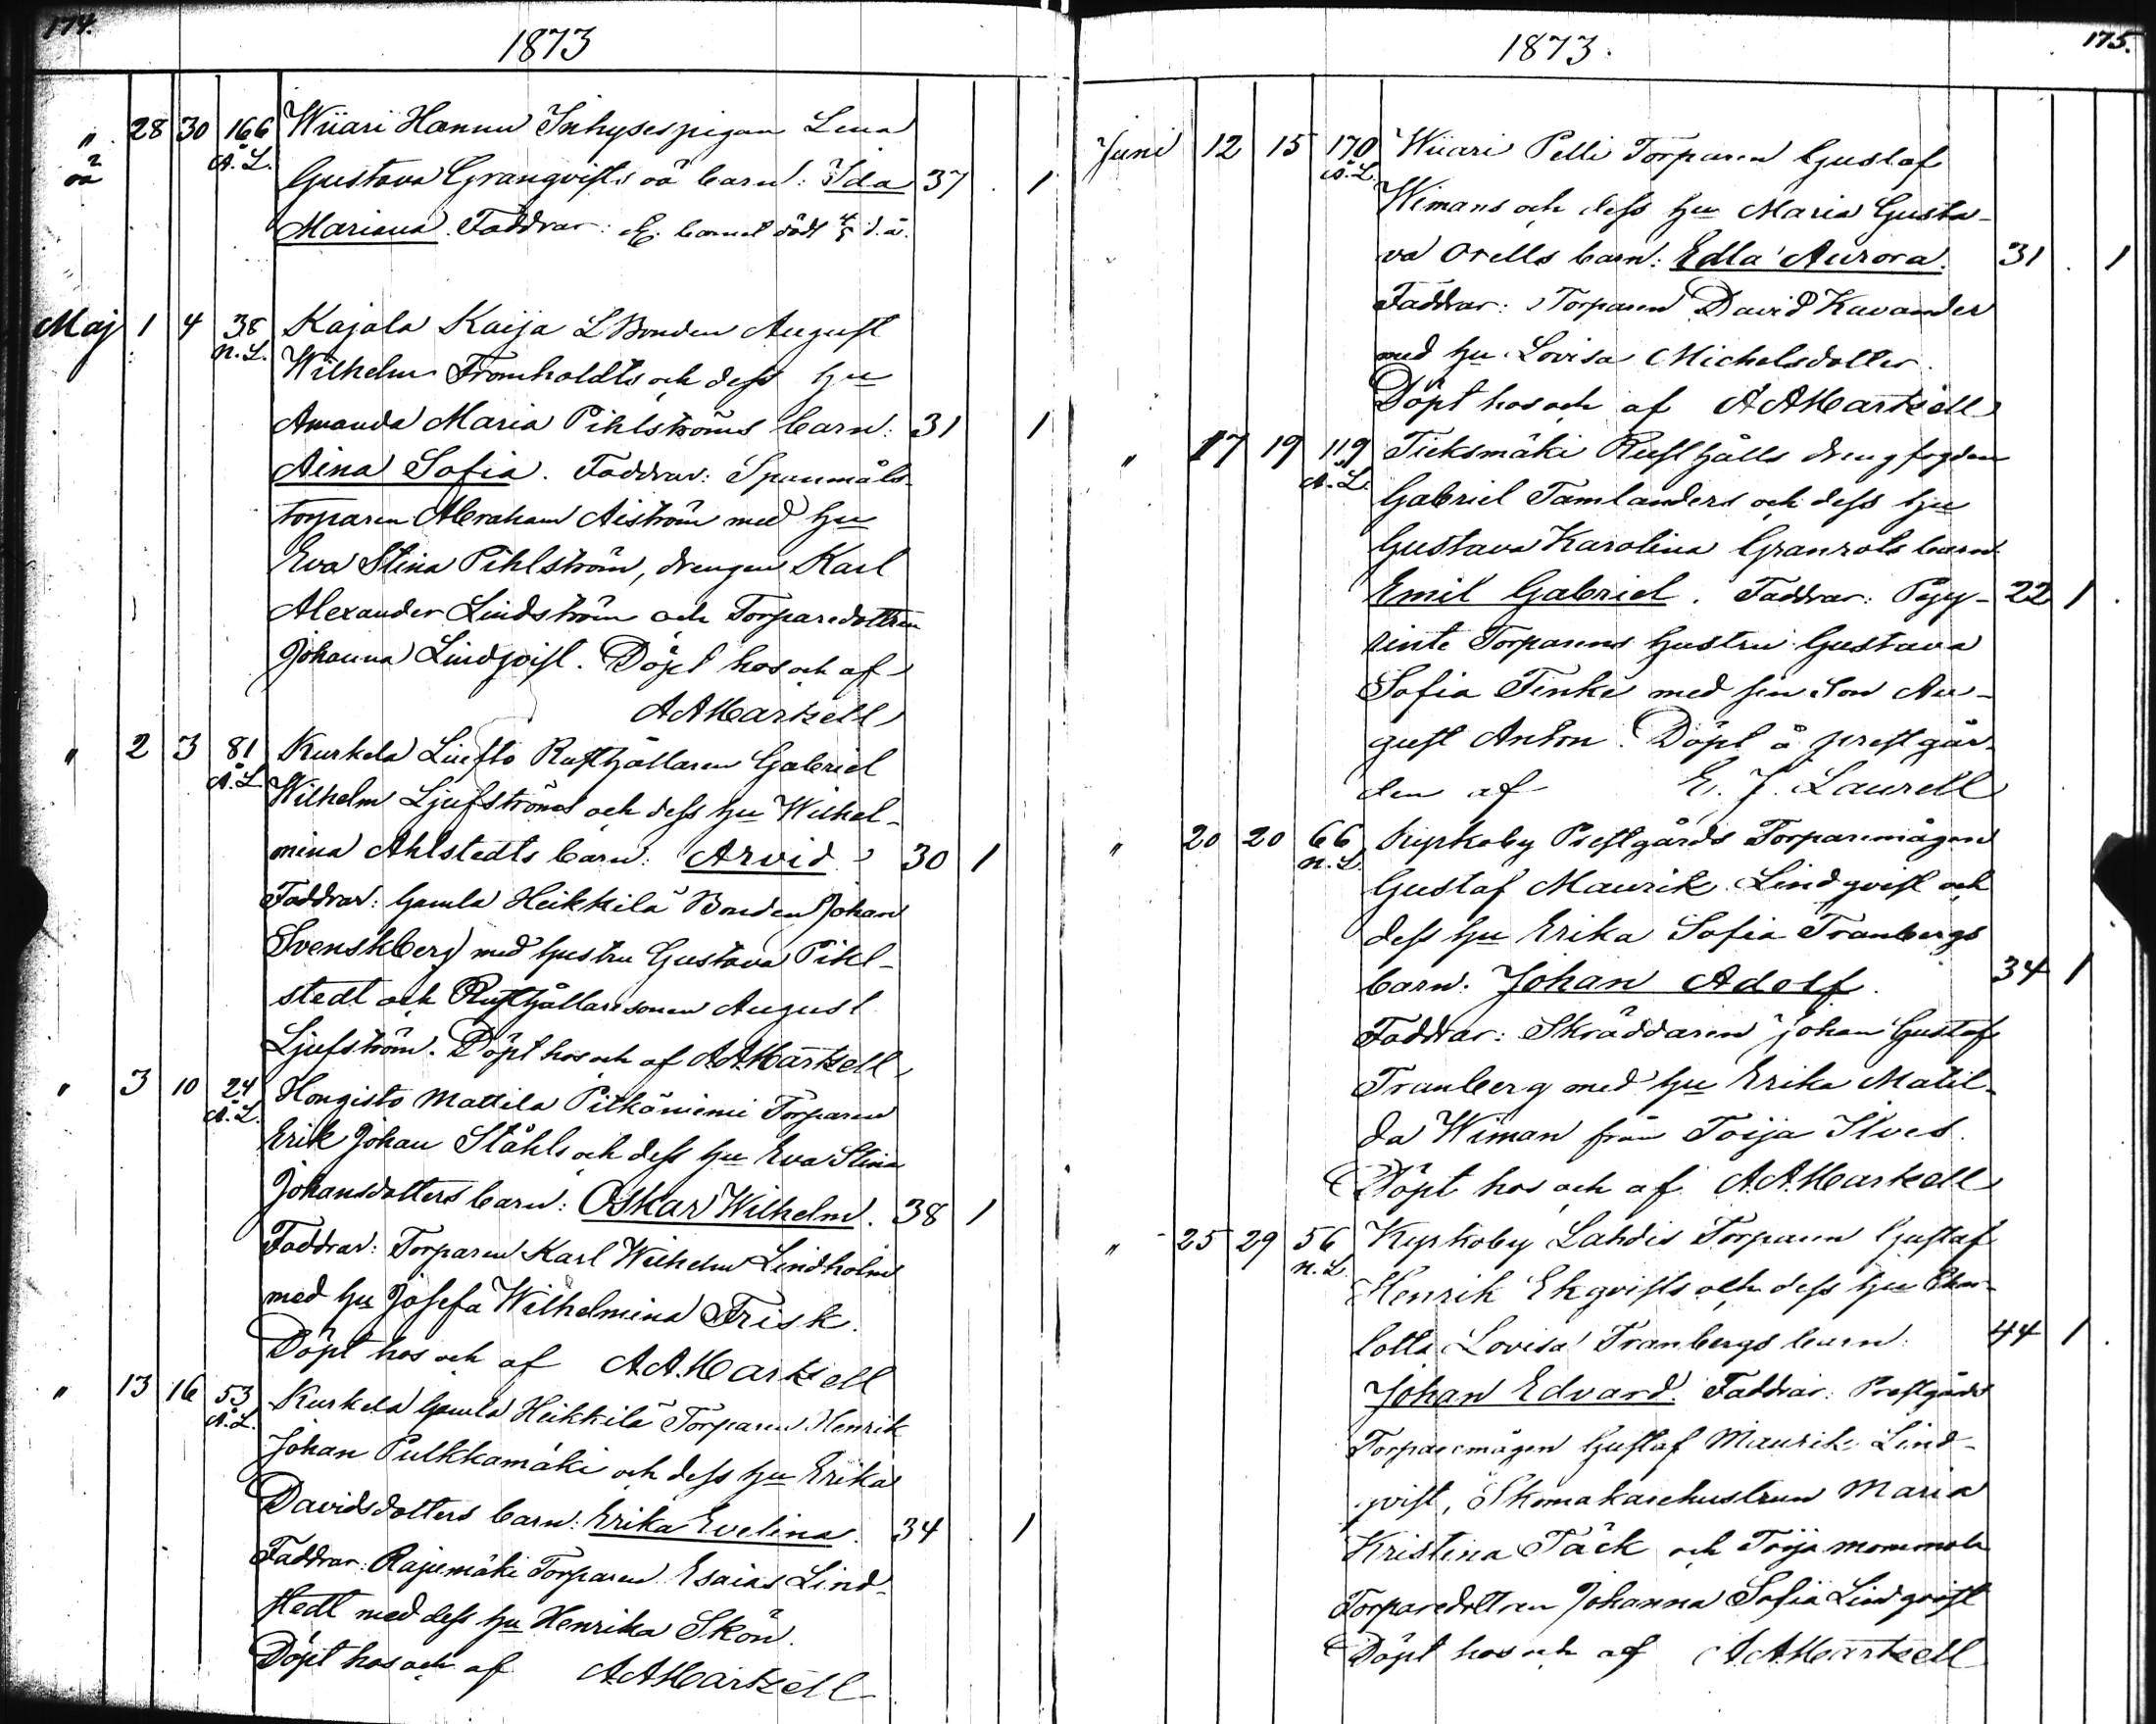 174.
1873
" 28 30 166 Wiiari Hannu Inhysespigan Lena
oä A.L. Gustava Granqvists oä barn: Ida 37 1
Mariana. Faddrar: barnet dödt d. ä.
Maj 1 4 38 Kajala Kaija L Bonden August
N.L. Wilhelm Fromholdts och dess hu
Amanda Maria Pihlströms barn: 31 1
Aina Sofia. Faddrar: Spanmåls-
torparen Abraham Aiström med hu
Eva Stina Pihlström, drengen Karl
Alexander Lindström och Torparedottren
Johanna Lindqvist. Döpt hos och af
A A Hartzell
" 2 3 81 Kurkela Liufto Rusthållaren Gabriel
A.L. Wilhelm Ljufströms och dess hu Wilhel-
mina Ahlstedts barn: Arvid 30 1
Faddrar: Gamla Heikkilä Bonden Johan
Svenskberg med hustru Gustava Pihl-
stedt och Rusthållaresonen August
Ljufström. Döpt hos och af A A Hartzell
" 3 10 24 Hongisto Mattila Pitkäniemi Torparen
A.L. Erik Johan Ståhls och dess hu Eva Stina
Johansdotters barn: Oskar Wilhelm. 38 1
Faddrar: Torparen Karl Wilhelm Lindholm
med hu Josefa Wilhelmina Frisk.
Döpt hos och af A A Hartzell
" 13 16 53 Kurkela Gamla Heikkilä Torparen Henrik
A.L. Johan Pulkkamäki och dess hu Erika
Davidsdotters barn: Erika Evelina. 34 1
Faddrar: Rajumäki Torparen Esaias Lind-
stedt med dess hu Henrika Skön.
Döpt hos och af A A Hartzell
175.
1873.
Juni 12 15 170 Wiiari Pelli Torparen Gustaf
A.L. Wimans och dess hu Maria Gusta-
va Orells barn: Edla Aurora. 31 1
Faddrar: Torparen David Kavander
med hu Lovisa Michelsdotter.
Döpt hos och af A A Hartzell
" 17 19 119 Tieksmäki Rusthålls drengfogden
A.L. Gabriel Tamlanders och dess hu
Gustava Karolina Granrots barn
Emil Gabriel. Faddrar: Pyy- 22 1
rinte Torparens hustru Gustava
Sofia Tenke med sin Son Au-
gust Anton. Döpt å prestgår-
den af E. J. Laurell
" 20 20 66 Kyrkoby Prestgårds Torparemågen
N.L. Gustaf Maurik Lindqvist och
dess hu Erika Sofia Tranbergs
barn: Johan Adolf. 34 1
Faddrar: Skräddaren Johan Gustaf
Tranberg med hu Erika Matil-
da Wiman från Toija Ilves.
Döpt hos och af A.A. Hartzell
" 25 29 56 Kyrkoby Lahdis Torparen Gustaf
N.L. Henrik Ekqvists och dess hu Char-
lotta Lovisa Tranbergs barn 44 1
Johan Edvard. Faddrar: Prestgårds
Torparemågen Gustaf Maurik Lind-
qvist, Skomakarehustrun Maria
Kristina Täck och Toija mommola
Torparedottren Johanna Sofia Lindqvist
Döpt hos och af A A Hartzell